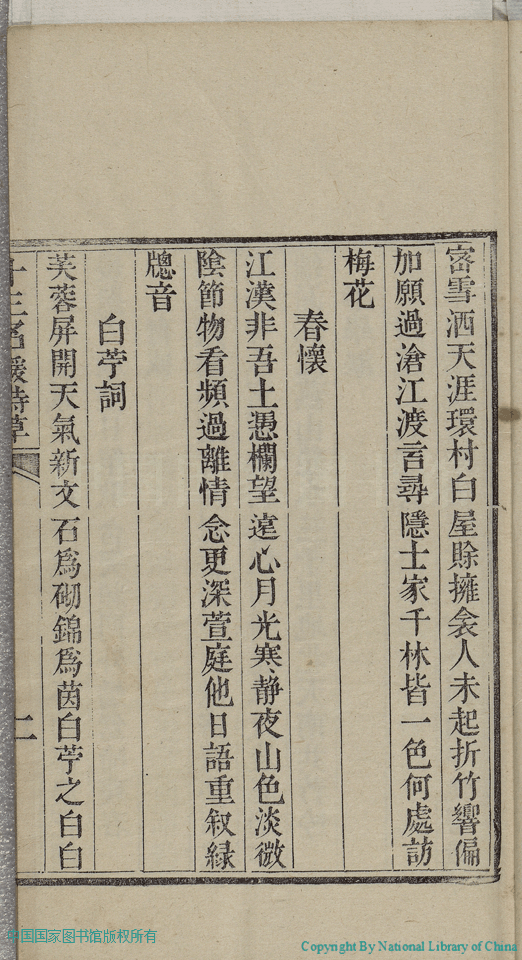 密雪洒天涯環村白屋賖擁衾人未起折竹響偏
加願過滄江渡言尋隱士家千林皆一色何處訪
梅花
春懷
江漢非吾土憑欄望遠心月光寒靜夜山色淡微
陰節物看頻過離情念更深萱庭他日語重叙緑
牕音
白苧詞
芙蓉屏開天氣新文石爲砌錦爲茵白苧之白白
十三名媛詩草
二
中国国家图书馆版权所有
Copyright By National Library of China